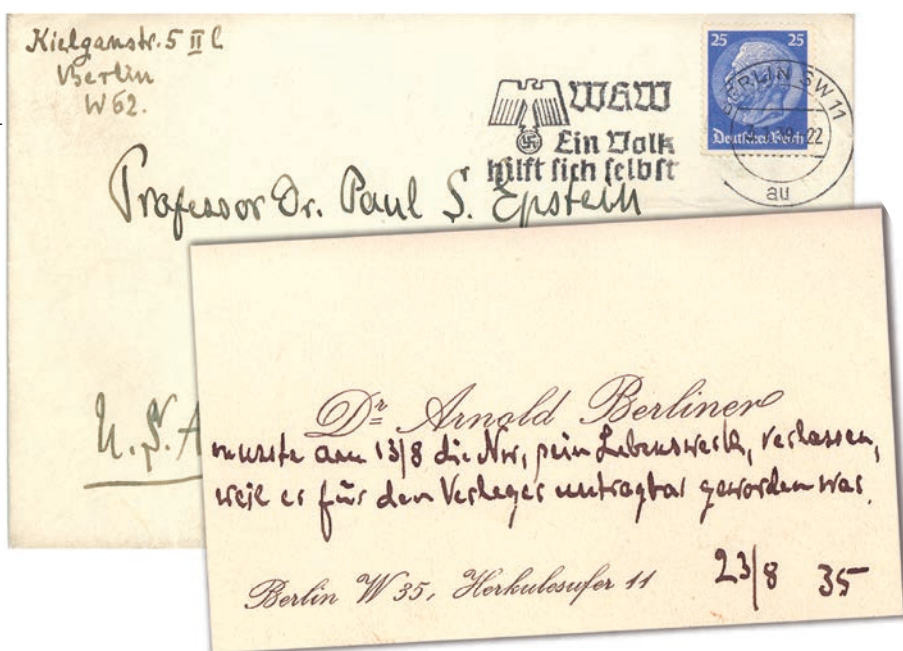 Kielganstr. 5 II l
Berlin
W 62.
WHW
Ein Volk
hilft sich selbst
25 25
Deutsches Reich
BERLIN SW 11
22
au
Professor Dr. Paul S. Epstein
U.S.A
Dr Arnold Berliner
musste am 13/8 die Nw, sein Lebenswerk, verlassen,
weil er für den Verleger untragbar geworden war.
Berlin W 35, Herkulesufer 11
23/8 35